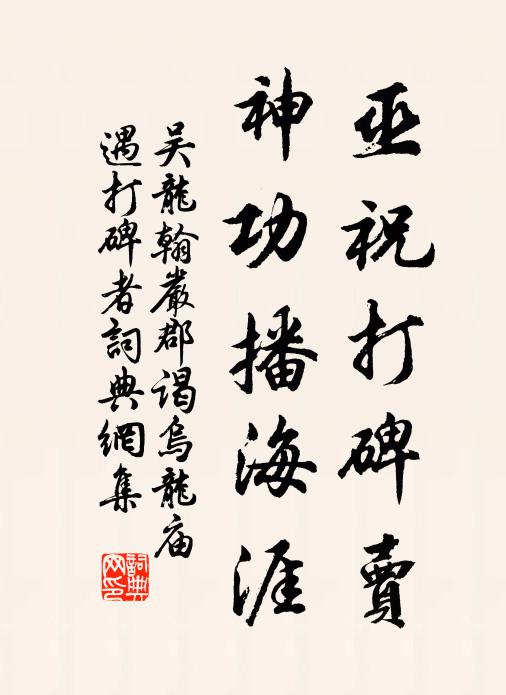 巫祝打碑賣
神功播海涯
吳龍翰嚴郡謁烏龍庙
遇打碑者詞典網集
詞典网印